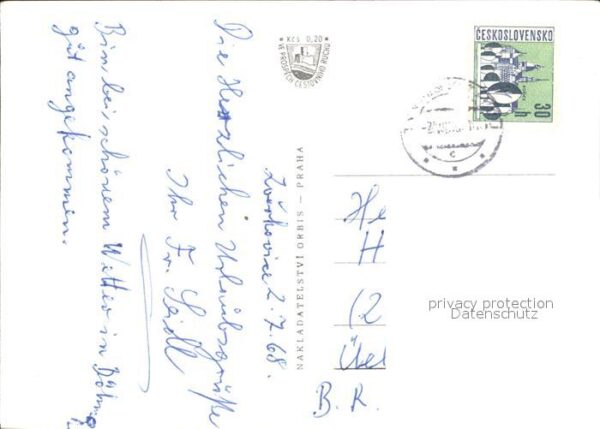 Kčs 0,20
VE PROSPĚCH CESTOVNÍHO RUCHU
ČESKOSLOVENSKO
30
h
Die Herzlichen Urlaubsgrüße
Ihr Fr. Seidl
Bin bei schönem Wetter in Böhm.
gut angekommen.
2.7.68.
NAKLADATELSTVÍ ORBIS – PRAHA
He
H
(2
B. R.
privacy protection
Datenschutz